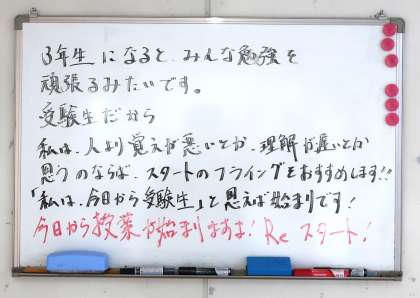 3年生になると、みんな勉強を
頑張るみたいです。
受験生だから
私は、人より覚えが悪いとか、理解が遅いとか
思うのならば、スタートのフライングをおすすめします!!
「私は、今日から受験生」と思えば始まりです!
今日から授業が始まります! Re スタート!